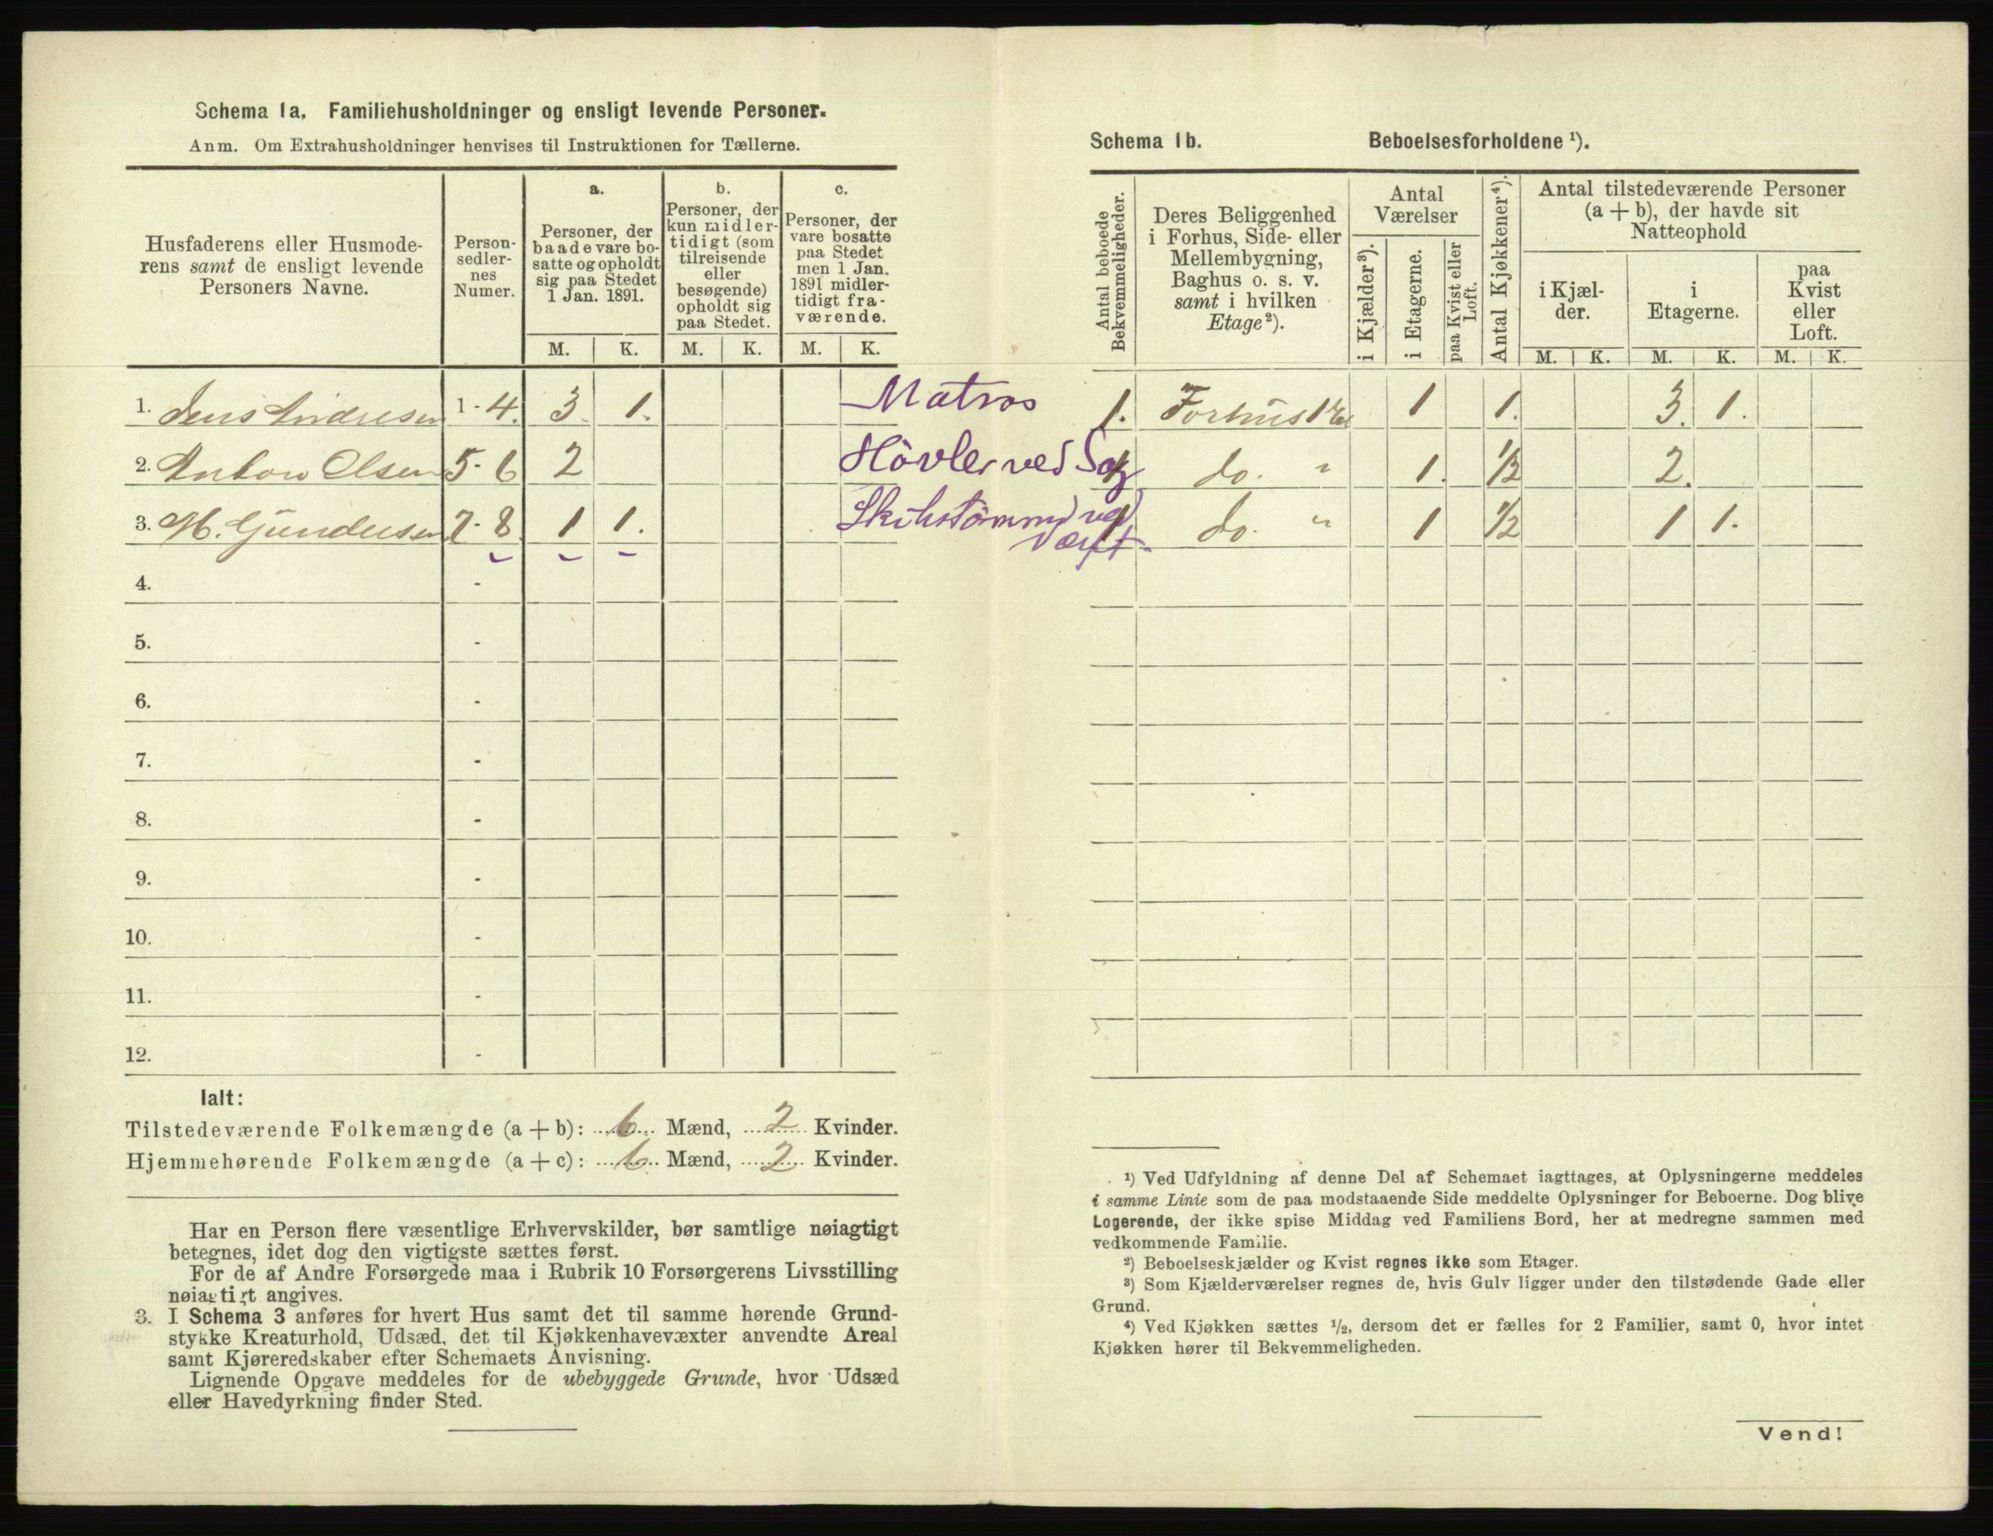 Schema 1a. Familiehusholdninger og ensligt levende Personer.
Anm. Om Extrahusholdninger henvises til Instruktionen for Tællerne.
Husfaderens eller Husmode-
rens samt de ensligt levende
Personers Navne.
Person-
sedler-
nes
Numer.
a.
Personer, der
baade vare bo-
satte og opholdt
sig paa Stedet
1 Jan. 1891.
b.
Personer, der
kun midler-
tidigt (som
tilreisende
eller
besøgende)
opholdt sig
paa Stedet.
c.
Personer, der
vare bosatte
paa Stedet
men 1 Jan.
1891 midler-
tidigt fra-
værende.
M. K. M. K. M. K.
1. Jens Andresen 1-4. 3. 1. Matros
2. Anton Olsen 5-6 2 Hövler ved Sag
3. M. Gundersen 7-8. 1 1. Skibstömmr ved
Værft
4. -
5. -
6. -
7. -
8. -
9. -
10. -
11. -
12. -
Ialt:
Tilstedeværende Folkemængde (a + b): 6 Mænd, 2 Kvinder.
Hjemmehørende Folkemængde (a + c): 6 Mænd, 2 Kvinder.
Har en Person flere væsentlige Erhvervskilder, bør samtlige nøiagtigt
betegnes, idet dog den vigtigste sættes først.
For de af Andre Forsørgede maa i Rubrik 10 Forsørgerens Livsstilling
nøiagtigt angives.
3. I Schema 3 anføres for hvert Hus samt det til samme hørende Grund-
stykke Kreaturhold, Udsæd, det til Kjøkkenhavevæxter anvendte Areal
samt Kjøreredskaber efter Schemaets Anvisning.
Lignende Opgave meddeles for de ubebyggede Grunde, hvor Udsæd
eller Havedyrkning finder Sted.
Schema 1b. Beboelsesforholdene ¹).
Antal beboede
Bekvemmeligheder.
Deres Beliggenhed
i Forhus, Side- eller
Mellembygning,
Baghus o. s. v.
samt i hvilken
Etage ²).
Antal
Værelser
i Kjælder ³).
i Etagerne.
paa Kvist eller
Loft.
Antal Kjøkkener ⁴).
Antal tilstedeværende Personer
(a + b), der havde sit
Natteophold
i Kjæl-
der.
i
Etagerne.
paa
Kvist
eller
Loft.
M. K. M. K. M. K.
1. Forhus 1 Et 1 1. 3. 1.
1 do. " 1. 1/2 2.
1 do. " 1 1/2 1 1.
¹) Ved Udfyldning af denne Del af Schemaet iagttages, at Oplysningerne meddeles
i samme Linie som de paa modstaaende Side meddelte Oplysninger for Beboerne. Dog blive
Logerende, der ikke spise Middag ved Familiens Bord, her at medregne sammen med
vedkommende Familie.
²) Beboelseskjælder og Kvist regnes ikke som Etager.
³) Som Kjælderværelser regnes de, hvis Gulv ligger under den tilstødende Gade eller
Grund.
⁴) Ved Kjøkken sættes ¹/₂, dersom det er fælles for 2 Familier, samt 0, hvor intet
Kjøkken hører til Bekvemmeligheden.
Vend!